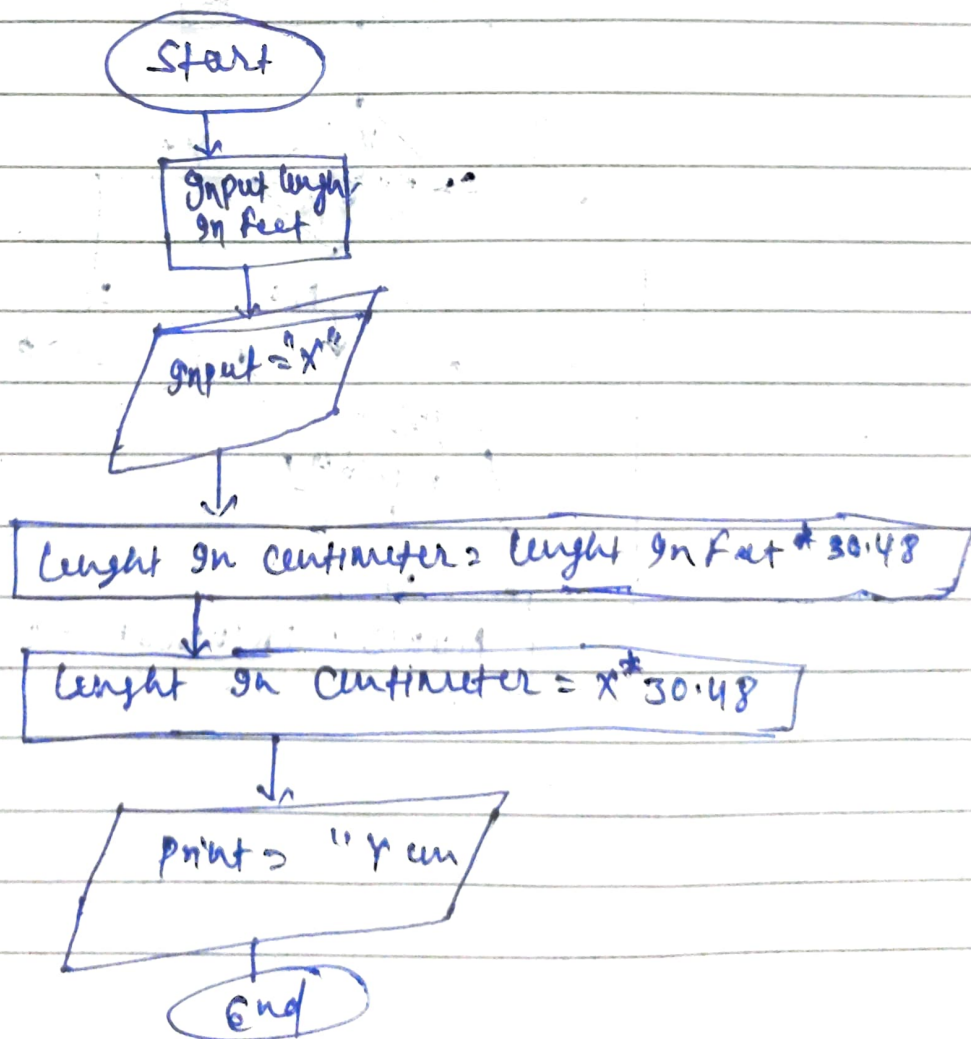 Start
Input lenght
In feet
Input = "x"
lenght In centimeter = lenght In Feet * 30.48
lenght In centimeter = x * 30.48
print = "Y cm
End